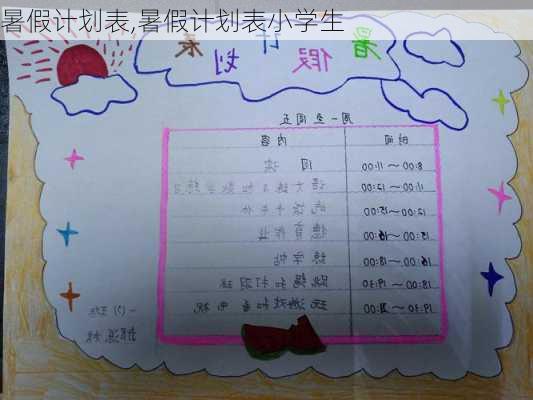 暑假计划表,暑假计划表小学生
暑假计划表
周一至周五
时间 内容
8:00~11:00 阅读
11:00~12:00 语文练习和数学练习
12:00~15:00 午休
15:00~16:00 德育作业
16:00~18:00 练字帖
18:00~19:30 跳绳和打羽球
19:30~21:00 玩游戏和看电视
一(1)